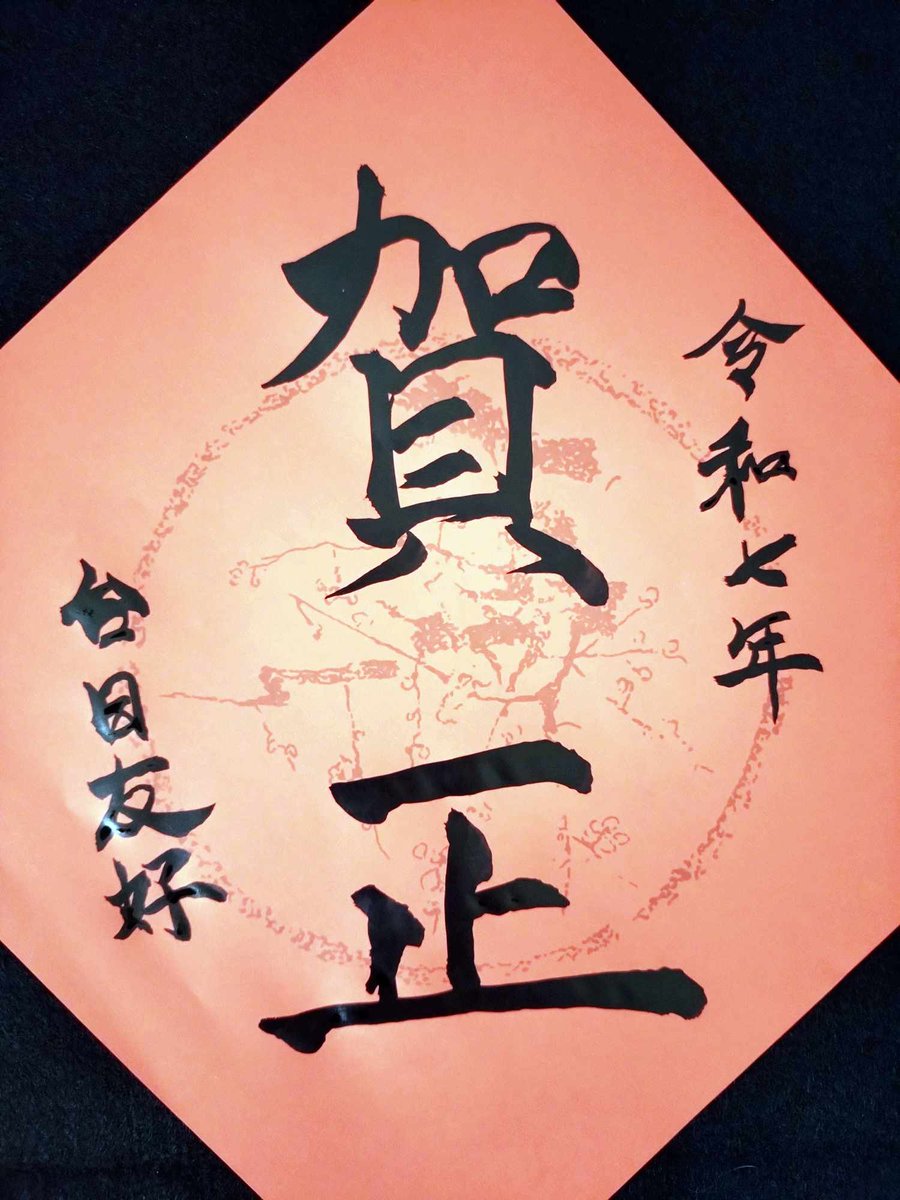 令和七年
賀正
台日友好